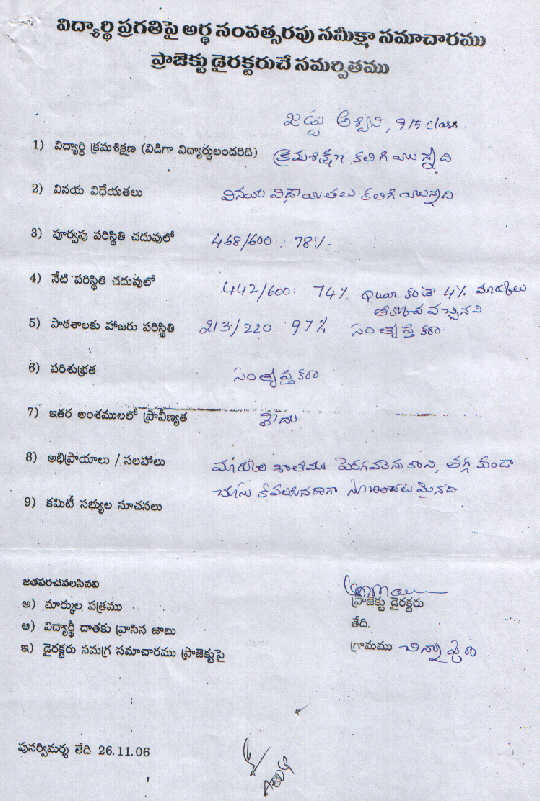 విద్యార్థి ప్రగతిపై అర్థ సంవత్సరపు సమీక్షా సమాచారము
ప్రాజెక్టు డైరక్టరుచే సమర్పితము
అశ్విని, 9th class
1) విద్యార్థి క్రమశిక్షణ (విడిగా విద్యార్థులందరిది) క్రమశిక్షణ కలిగి యున్నది
2) వినయ విధేయతలు వినయ విధేయతలు కలిగి యున్నది
3) పూర్వపు పరిస్థితి చదువులో 468/600 : 78%
4) నేటి పరిస్థితి చదువులో 442/600: 74% కంటే 4% మార్కులు
తక్కువ వచ్చినవి
5) పాఠశాలకు హాజరు పరిస్థితి 213/220 97% సంతృప్తికరం
6) పరిశుభ్రత సంతృప్తికరం
7) ఇతర అంశములలో ప్రావీణ్యత లేదు
8) అభిప్రాయాలు / సలహాలు మార్కుల శాతము పెరగవలెను కాని, తగ్గకుండా
చూసు కోవలసినదిగా సూచించడమైనది
9) కమిటీ సభ్యుల సూచనలు
జతపరచవలసినవి
అ) మార్కుల పత్రము
ఆ) విద్యార్థీ దాతకు వ్రాసిన జాబు
ఇ) డైరక్టరు సమగ్ర సమాచారము ప్రాజెక్టుపై
ప్రాజెక్ట్ డైరక్టరు
తేది.
గ్రామము
పునర్విమర్శ తేది 26.11.06